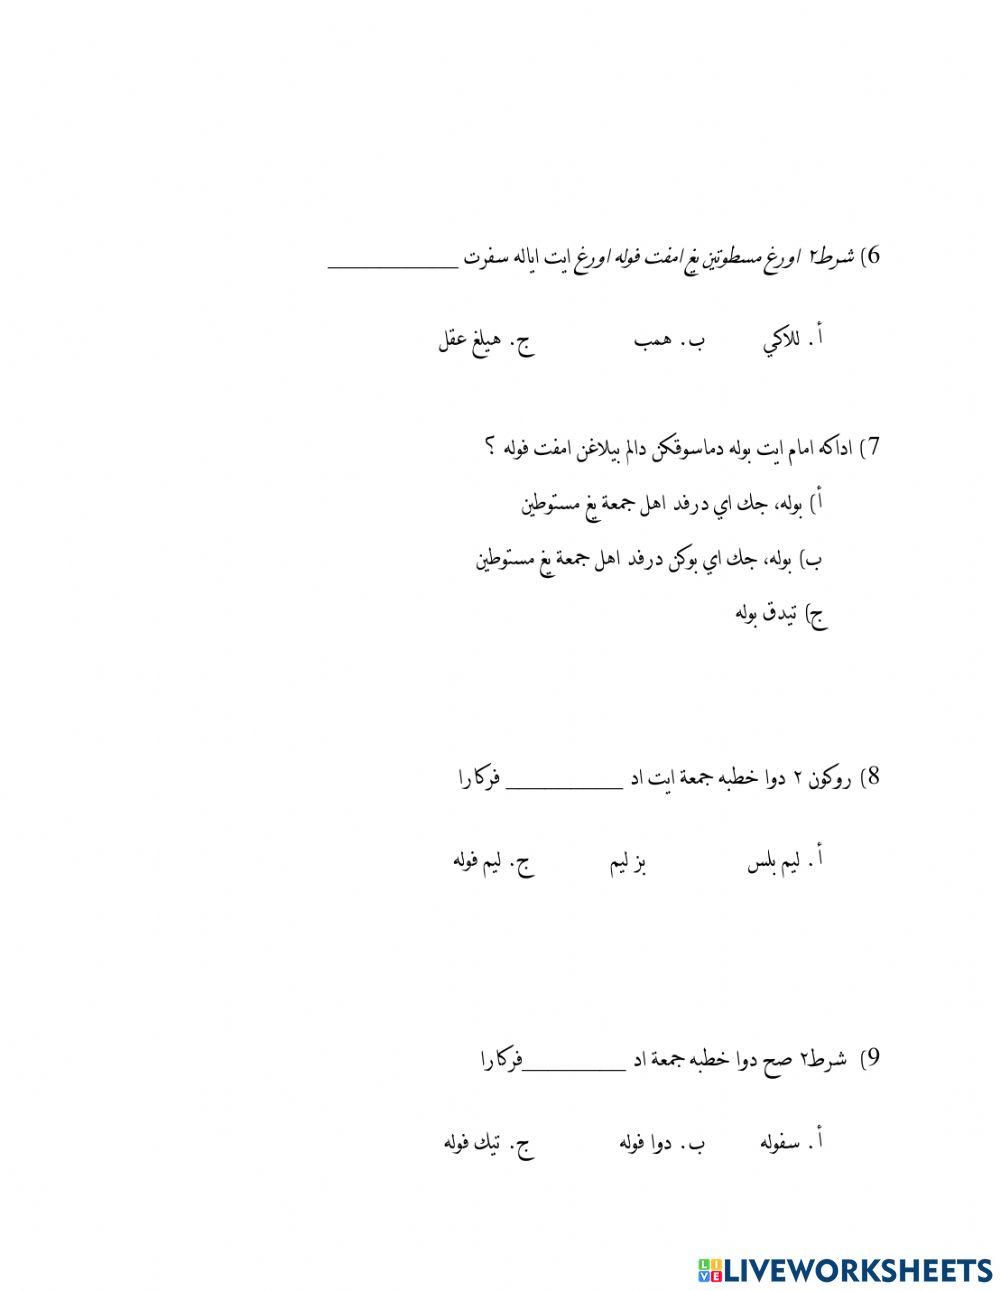 6) شرط٢ اورغ مسطوتين يغ امفت فوله اورغ ايت اياله سفرت ____________
أ. للاكي ب. همب ج. هيلغ عقل
7) اداكه امام ايت بوله دماسوقكن دالم بيلاغن امفت فوله ؟
أ) بوله، جك اي درفد اهل جمعة يغ مستوطين
ب) بوله، جك اي بوكن درفد اهل جمعة يغ مستوطين
ج) تيدق بوله
8) روكون ٢ دوا خطبه جمعة ايت اد ___________ فركارا
أ. ليم بلس بز ليم ج. ليم فوله
9) شرط٢ صح دوا خطبه جمعة اد __________فركارا
أ. سفوله ب. دوا فوله ج. تيك فوله
LIVEWORKSHEETS